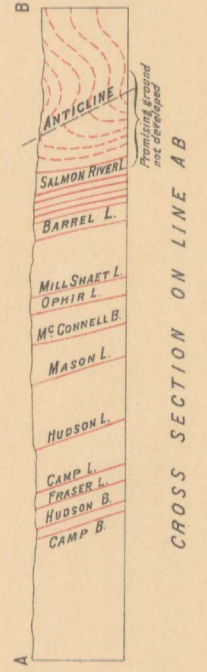 B
ANTICLINE
Promising ground
not developed
SALMON RIVER L.
BARREL L.
MILL SHAET L.
OPHIR L.
McCONNELL B.
MASON L.
HUDSON L.
CAMP L.
FRASER L.
HUDSON B.
CAMP B.
A
CROSS SECTION ON LINE AB